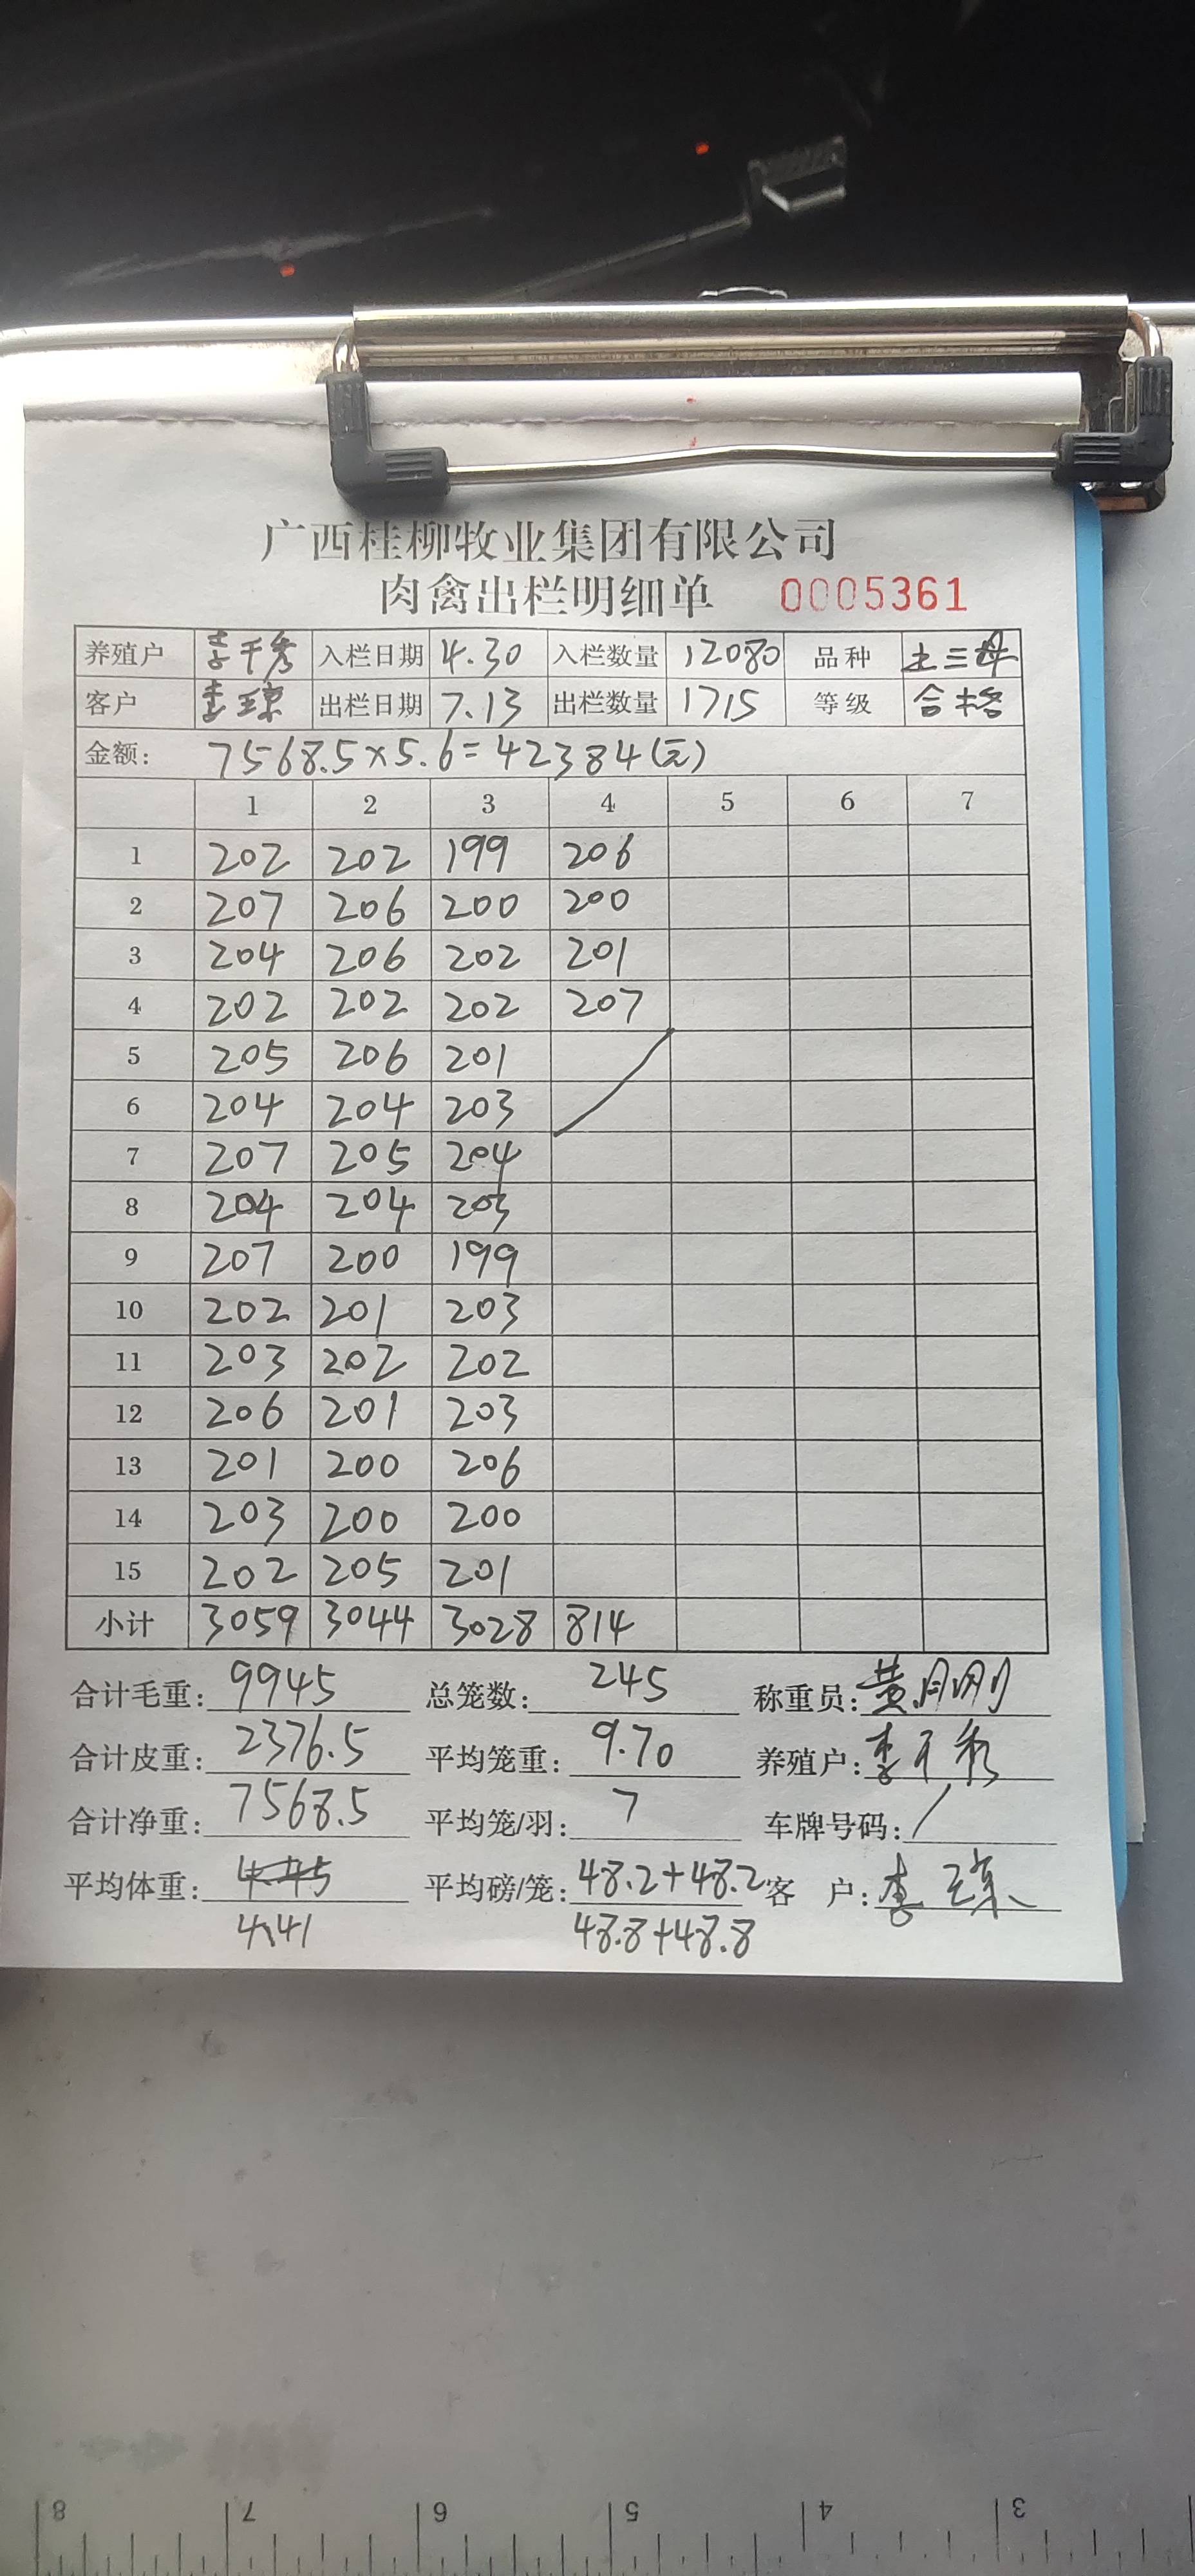 广西桂柳牧业集团有限公司
肉禽出栏明细单 0005361
养殖户 李千秀 入栏日期 4.30 入栏数量 12080 品种 土三母
客户 李琼 出栏日期 7.13 出栏数量 1715 等级 合格
金额: 7568.5×5.6=42384(元)
1 2 3 4 5 6 7
1 202 202 199 206
2 207 206 200 200
3 204 206 202 201
4 202 202 202 207
5 205 206 201
6 204 204 203
7 207 205 204
8 204 204 203
9 207 200 199
10 202 201 203
11 203 202 202
12 206 201 203
13 201 200 206
14 203 200 200
15 202 205 201
小计 3059 3044 3028 814
合计毛重: 9945 总笼数: 245 称重员: 黄月刚
合计皮重: 2376.5 平均笼重: 9.70 养殖户: 李千秀
合计净重: 7568.5 平均笼/羽: 7 车牌号码: /
平均体重: 4.45 平均磅/笼: 48.2+48.2 客 户: 李琼
4.41 48.8+48.8
8 7 6 5 4 3